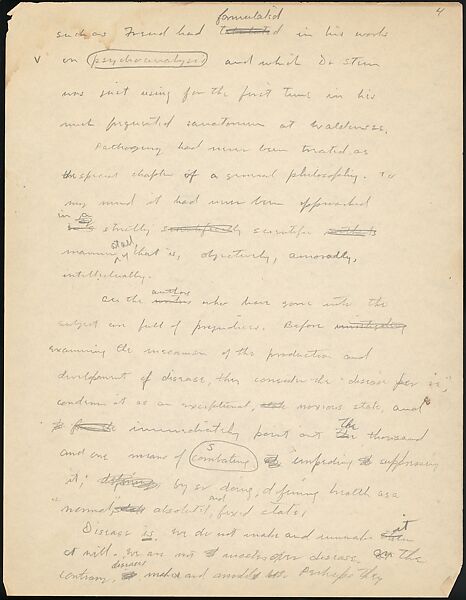 4
formulated
such as Freud had d in his works
v on psychoanalysis and which Dr Stein
was just using for the first time in his
much frequented sanatorium at Waldensee.
Pathogeny had never been treated as
special chapter of a general philosophy. To
my mind it had never been approached
in a strictly scientifically scientific
manner at all, that is, objectively, amorally,
intellectually.
All the authors who have gone into the
subject are full of prejudices. Before investigating
examining the mechanism of the production and
development of disease, they consider the "disease per se,"
condemn it as an exceptional, noxious state, and
immediately point out the thousand
and one means of combating it, impeding suppressing
it; by so doing, defining health as a
"normal," absolute, and fixed state,
Disease is. We do not make and unmake it
at will. We are not masters of our disease. On the
contrary, disease makes and models us. Perhaps they